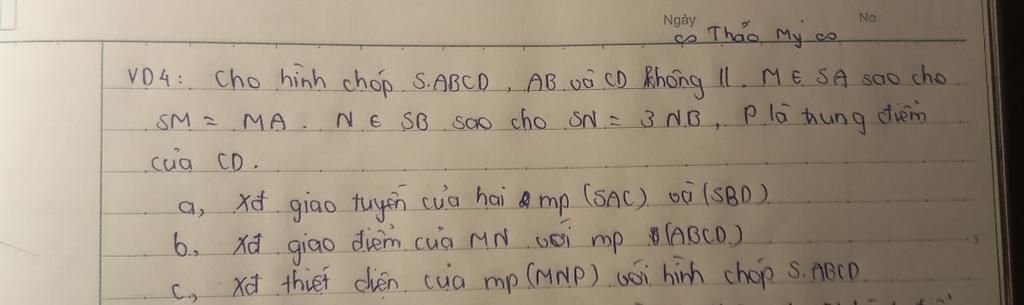 Ngày
No.
Thảo My
VD4: Cho hình chóp S.ABCD, AB và CD không //. M ∈ SA sao cho
SM = MA. N ∈ SB sao cho SN = 3 NB, P là trung điểm
của CD.
a, Xđ giao tuyến của hai mp (SAC) và (SBD)
b, Xđ giao điểm của MN với mp (ABCD)
c, Xđ thiết diện của mp (MNP) với hình chóp S.ABCD